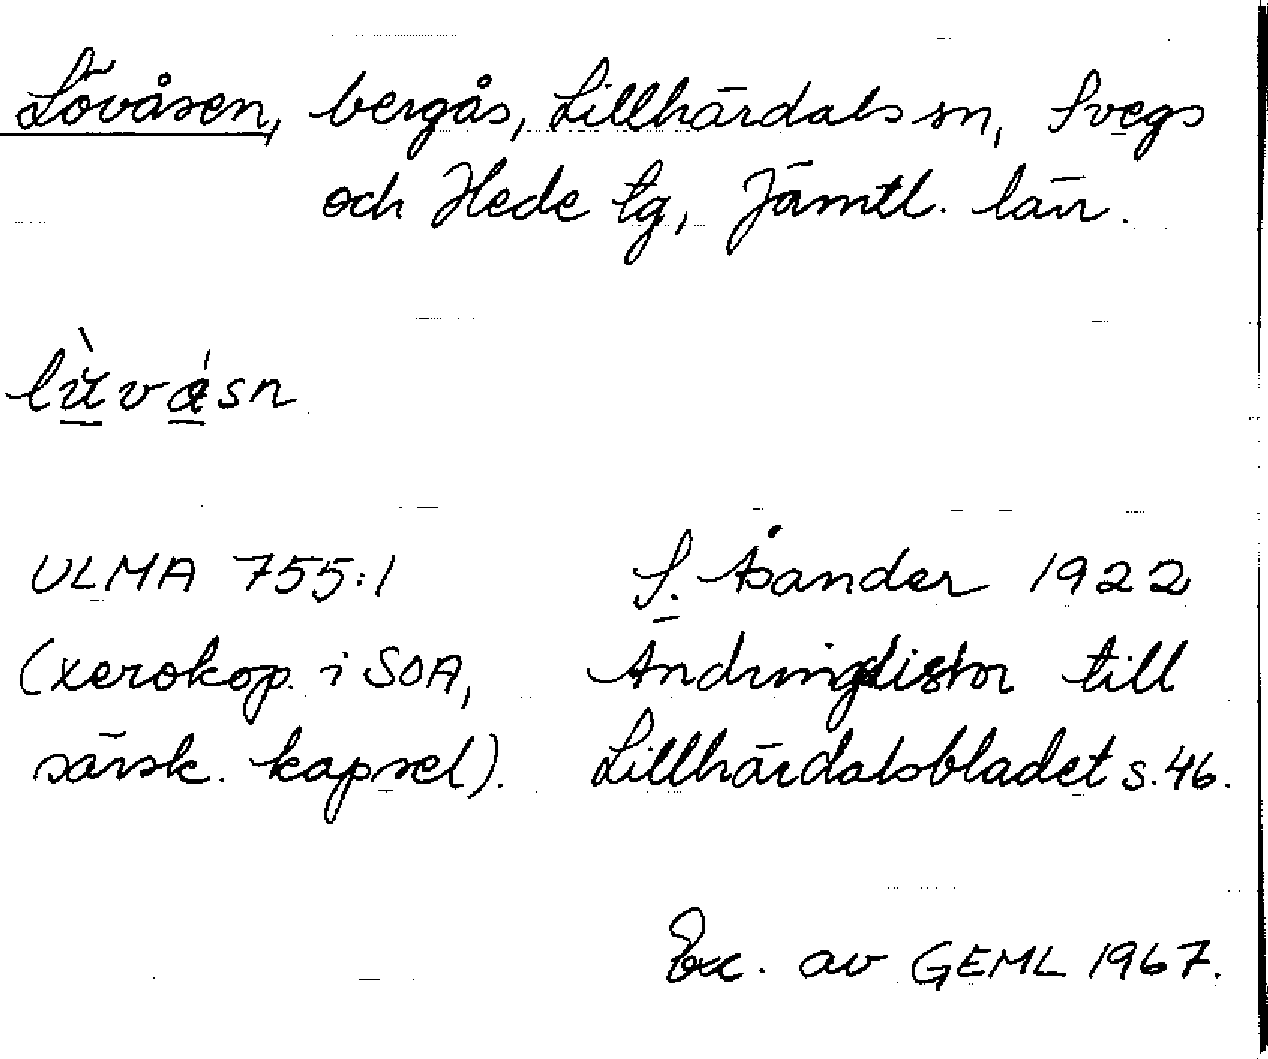 Lövåsen, bergås, Lillhärdals sn, Svegs
och Hede tg, Jämtl. län.
lùvåsn
ULMA 755:1
(xerokop. i SOA,
särsk. kapsel).
S. Åsander 1922
Ändringslistor till
Lillhärdalsbladet s.46.
Exc. av GEML 1967.